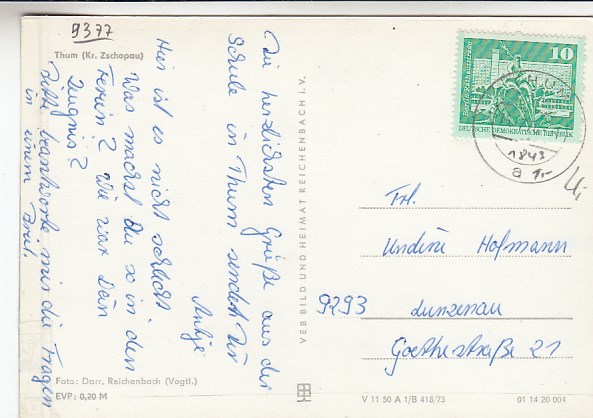 9377
Thum (Kr. Zschopau)
Die herzlichsten Grüße aus der
Schule in Thum sendet Dir
Antje
Hier ist es nicht schlecht
Was machst Du so in den
Ferien? Wie war Dein
Zeugnis?
Bitte beantworte mir die Fragen
in einem Brief.
Foto: Darr, Reichenbach (Vogtl.)
EVP: 0,20 M
VEB BILD UND HEIMAT REICHENBACH I. V.
10
DEUTSCHE DEMOKRATISCHE REPUBLIK
THUM
1843
a
Frl.
Undine Hofmann
9293 Lunzenau
Goethestraße 21
V 11 50 A 1/B 418/73
01 14 20 004